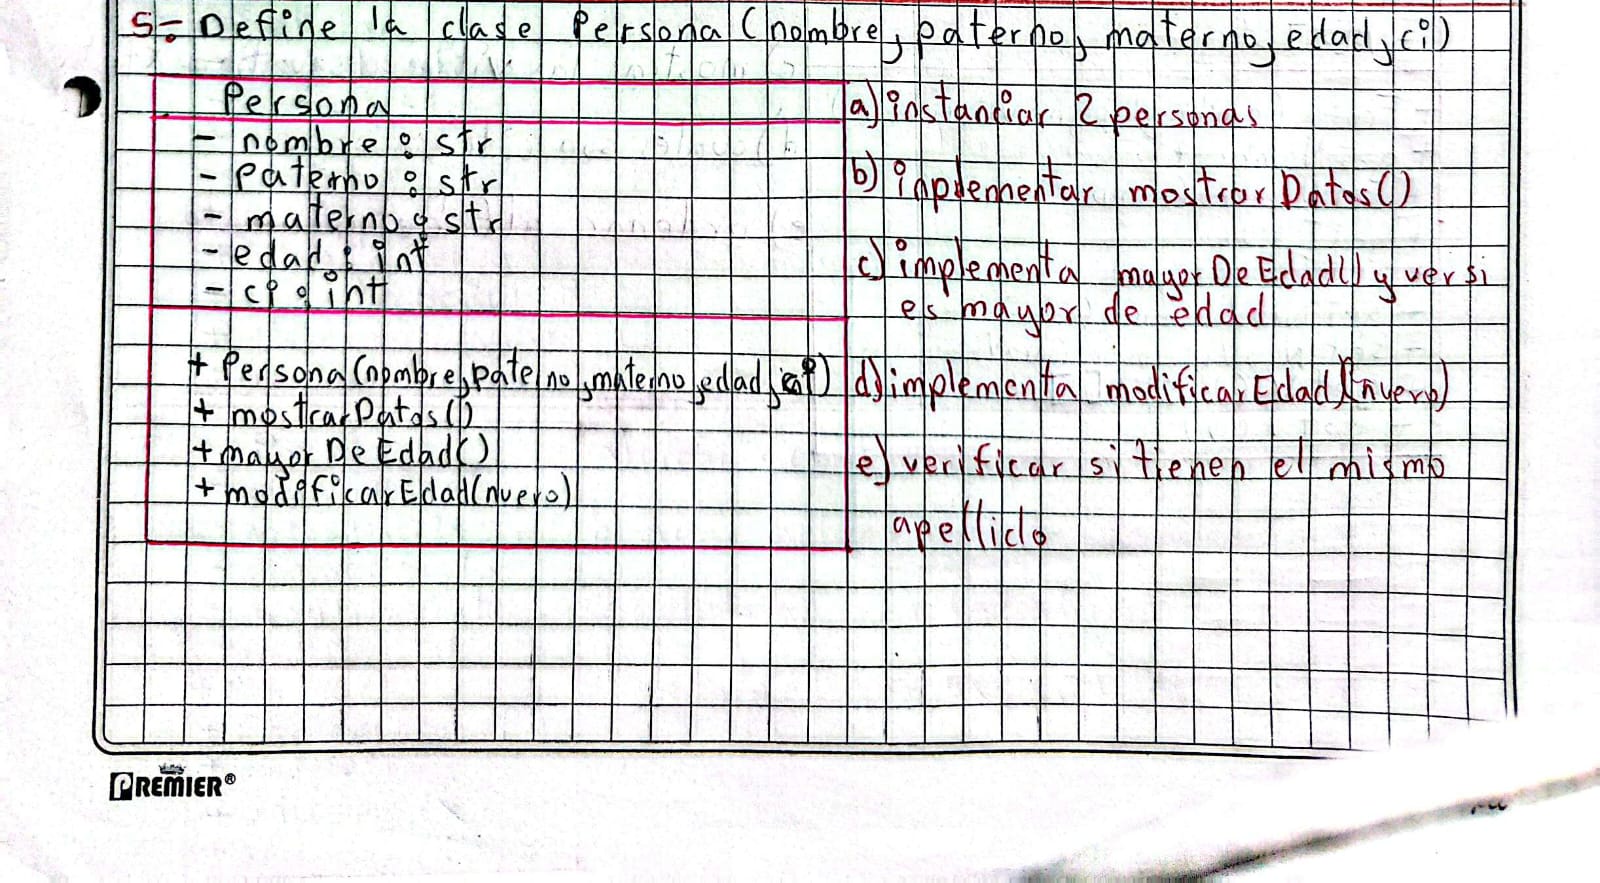 5.- Define la clase Persona (nombre, paterno, materno, edad, ci)
Persona
- nombre : str
- Paterno : str
- materno : str
- edad : int
- ci : int
+ Persona (nombre, paterno, materno, edad, ci)
+ mostrarDatos()
+ mayorDeEdad()
+ modificarEdad(nuevo)
a) instanciar 2 personas
b) implementar mostrarDatos()
c) implementa mayorDeEdad() y ver si
es mayor de edad
d) implementa modificarEdad(nuevo)
e) verificar si tienen el mismo
apellido
PREMIER®